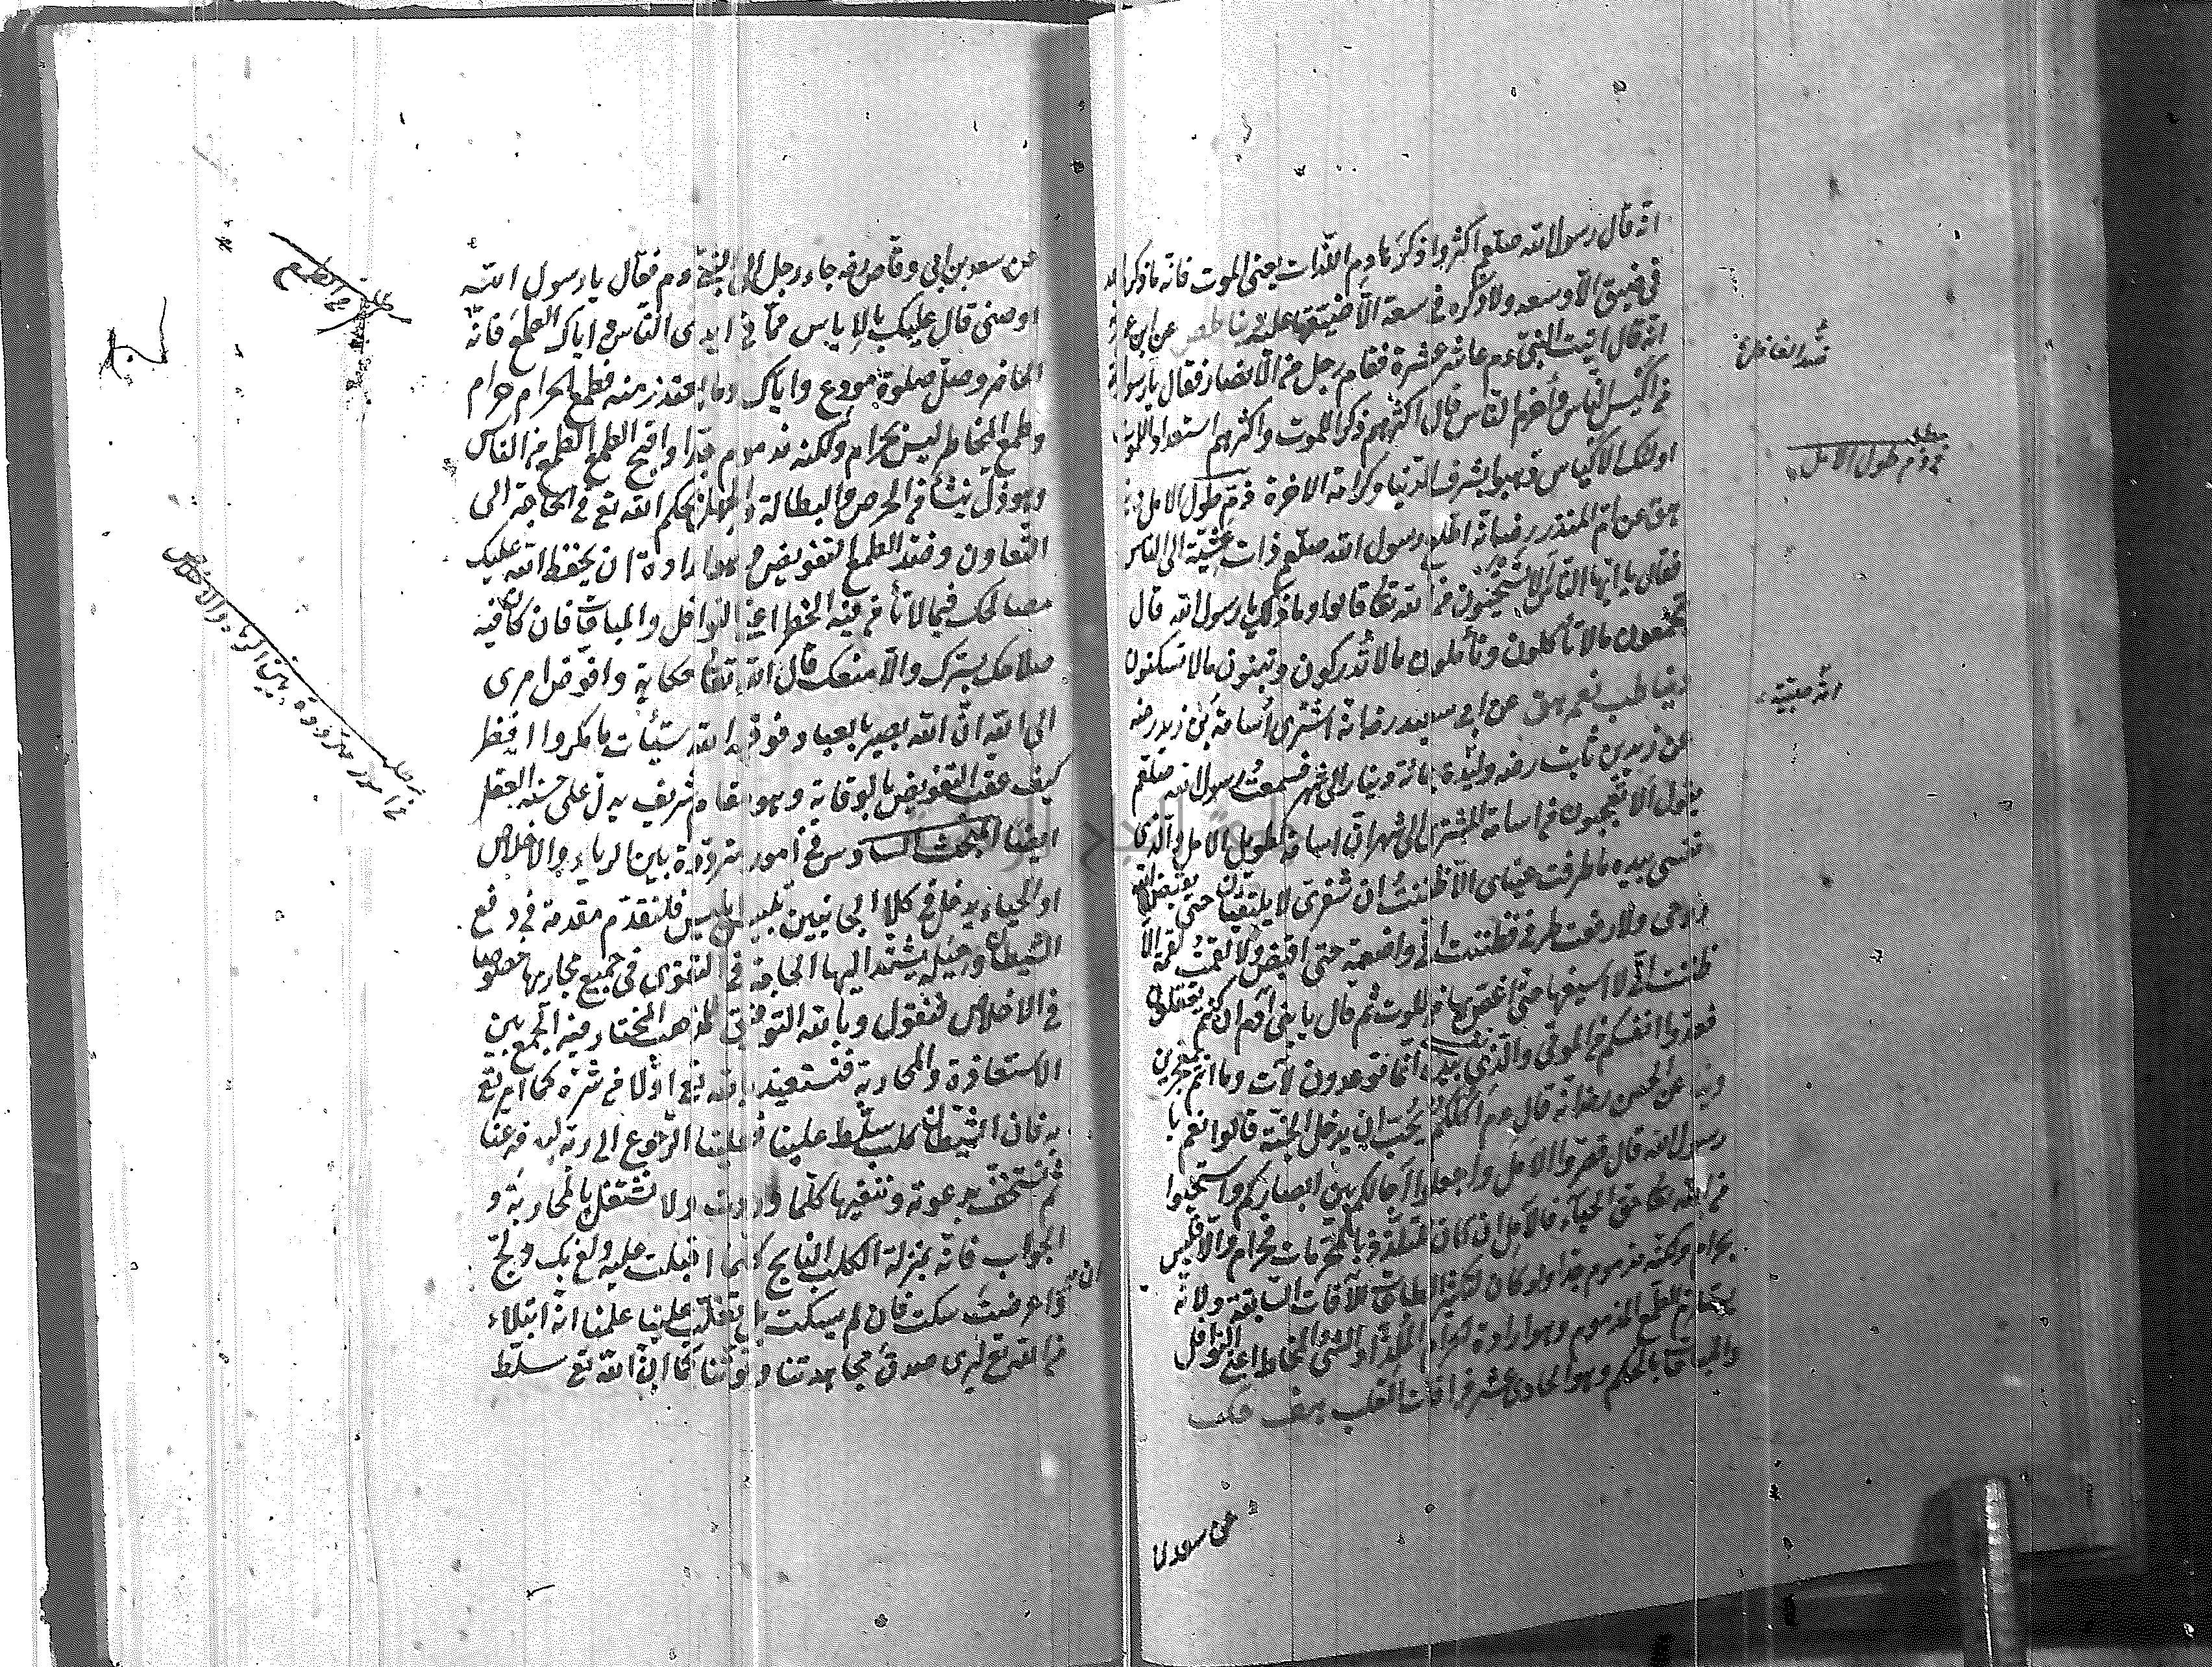 انه قال رسول الله صلعم اكثروا ذكر هادم اللذات يعنى الموت فانه ما ذكره احد
فى ضيق الا وسعه ولا ذكره فى سعة الا ضيقها عليه عن ابن عمر
انه قال اتيت النبى عم عاشر عشرة فقام رجل من الانصار فقال يا رسول الله
من اكيس الناس واحزم الناس قال اكثرهم ذكرا للموت واكثرهم استعدادا للموت
اولئك الاكياس ذهبوا بشرف الدنيا وكرامة الاخرة ذم طول الامل
هق عن ام المنذر رضـ انه اطلع رسول الله صلعم ذات عشية الى الناس
فقال يا ايها الناس الا تستحيون من الله تعا قالوا وما ذلك يا رسول الله قال
تجمعون ما لا تأكلون وتأملون ما لا تدركون وتبنون ما لا تسكنون
دنيا طب نعم هق عن ابى سعيد رضـ انه اشترى اسامة بن زيد رضه
من زيد بن ثابت رضه وليدة بمائة دينار الى شهر فسمعت رسول الله صلعم
يقول الا تعجبون من اسامة المشترى الى شهر ان اسامة لطويل الامل والذى
نفسى بيده ما طرفت عيناى الا ظننت ان شفرى لا يلتقيان حتى يقبض الله
روحى ولا رفعت طرفى فظننت انى واضعه حتى اقبض ولا لقمت لقمة الا
ظننت انى لا اسيغها حتى اغص بها من الموت ثم قال يا بنى آدم ان كنتم تعقلون
فعدوا انفسكم من الموتى والذى نفسى بيده انما توعدون لآت وما انتم بمعجزين
دنيا عن الحسن رضـ انه قال عم اكلكم يحب ان يدخل الجنة قالوا نعم يا
رسول الله قال قصروا الامل واجعلوا آجالكم بين ابصاركم واستحيوا
من الله تعا حق الحياء فالامل ان كان للتلذذ بالمحرمات فحرام والا فليس
بحرام ولكنه مذموم جدا ولو كان لتكثير الطاعات للآفات السابقة ولانه
يستلزم الطمع المذموم وهو ارادة الحرام الملذ او الشئ المخاطر اعنى النوافل
والمباحات بالحكم وهو الحادى عشر من آفات القلب هق حك
عن سعد بن
ضد الغافلين
مطلب
فى ذم طول الامل
عن سعد بن ابى وقاص رضه جاء رجل الى النبى عم فقال يا رسول الله
اوصنى قال عليك بالاياس مما فى ايدى الناس واياك الطمع فانه
الحاضر وصل صلوة مودع واياك وما يعتذر منه فطمع الحرام حرام
وطمع المخاطر ليس بحرام ولكنه مذموم جدا واقبح الطمع الطمع من الناس
وهو ذل ينشأ من الحرص والبطالة والجهل بحكم الله تع فى الحاجة الى
التعاون وضد الطمع التفويض وهو ارادة ان يحفظ الله عليك
مصالحك فيما لا تأمن فيه الخطر اعنى النوافل والمباحات فان كان فيه
صلاحك يسترك والا منعك قال الله تعا حكاية وافوض امرى
الى الله ان الله بصير بالعباد فوقيه الله سيئات ما مكروا انظر
كيف عقب التفويض بالوقاية وهو مقام شريف يدل على حسنه العقل
ايضا المبحث السادس فى امور مترددة بين الرياء والاخلاص
او الحياء يدخل فى كلا الجانبين تلبيس ابليس فلنقدم مقدمة فى دفع
الشيطان وحيله يشتد اليها الحاجة فى التقوى فى جميع مجاريها خصوصا
فى الاخلاص فنقول وبالله التوفيق المذهب المختار فيه الجمع بين
الاستعاذة والمحاربة فنستعيذ بالله تع اولا من شره كما امر تع
به فان الشيطان كلب سلط علينا فعلينا الرجوع الى ربه ليدفعه عنا
ثم نستخف بدعوته وننفيها كلما وردت ولا نشتغل بالمحاربة و
الجواب فانه بمنزلة الكلب النابح كلما اقبلت عليه ولغ بك ولج
وان اعرضت سكت فان لم يسكت بل تغلب علينا علمنا انه ابتلاء
من الله تع ليرى صدق مجاهدتنا وقوتنا كما ان الله تع سلط
مطلب فى الطمع
مطلب
فى امور مترددة بين الرياء والاخلاص